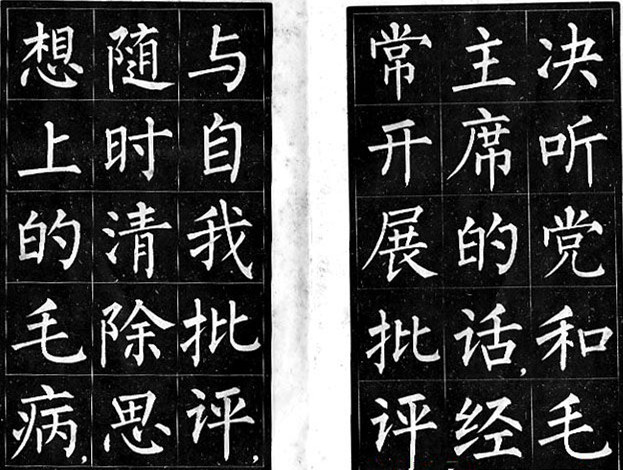 决听党和毛
主席的话,经
常开展批评
与自我批评,
随时清除思
想上的毛病,